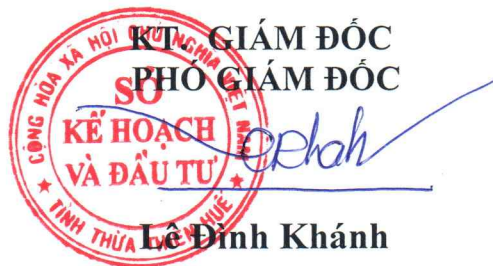 KT. GIÁM ĐỐC
PHÓ GIÁM ĐỐC
CỘNG HÒA XÃ HỘI CHỦ NGHĨA VIỆT NAM
SỞ
KẾ HOẠCH
VÀ ĐẦU TƯ
TỈNH THỪA THIÊN HUẾ
Lê Đình Khánh